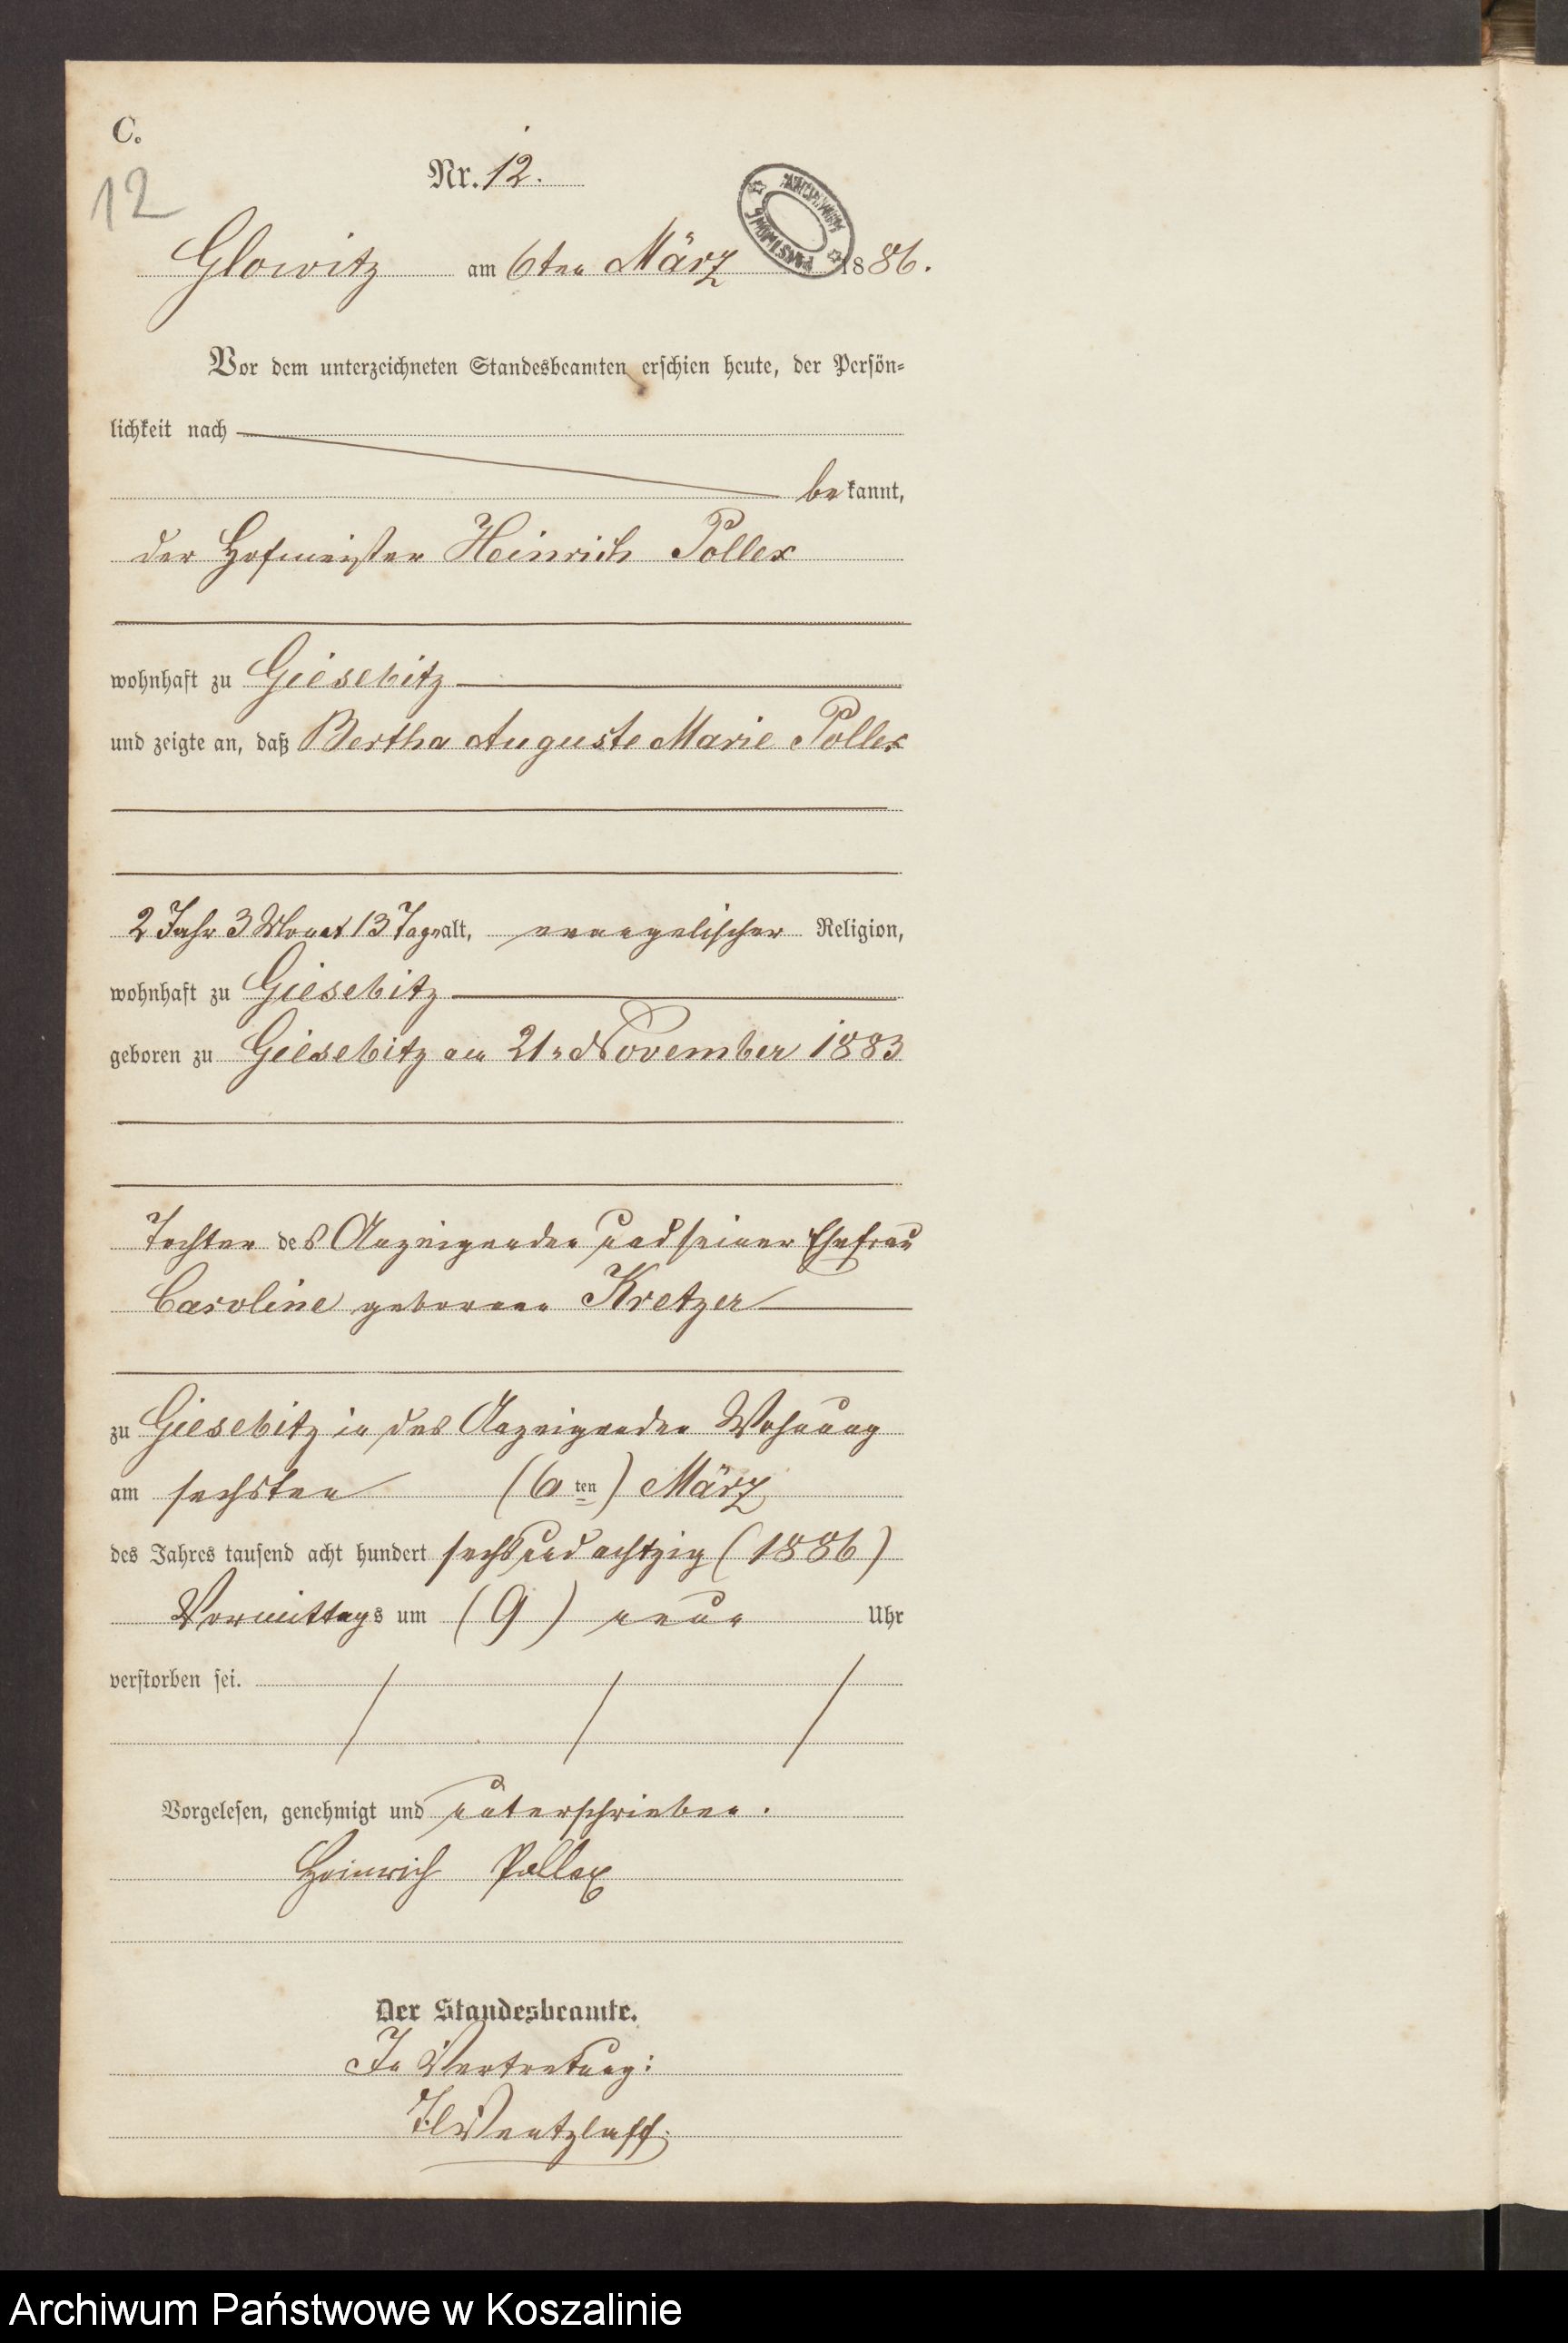 C.
12
Nr. 12.
ARCHIWUM PAŃSTWOWE
Glowitz am 6ten März 1886.
Vor dem unterzeichneten Standesbeamten erschien heute, der Persön-
lichkeit nach
bekannt,
der Hofmeister Heinrich Pollex
wohnhaft zu Giesebitz
und zeigte an, daß Bertha Auguste Marie Pollex
2 Jahr 3 Monat 13 Tage alt, evangelischer Religion,
wohnhaft zu Giesebitz
geboren zu Giesebitz am 21n November 1883
Tochter des Anzeigenden und seiner Ehefrau
Caroline geborenen Kretzer
zu Giesebitz in des Anzeigenden Wohnung
am sechsten (6ten) März
des Jahres tausend acht hundert sechs und achtzig (1886)
Vormittags um (9) neun Uhr
verstorben sei.
Vorgelesen, genehmigt und unterschrieben.
Heinrich Pollex
Der Standesbeamte.
In Vertretung:
Wentzlaff.
Archiwum Państwowe w Koszalinie